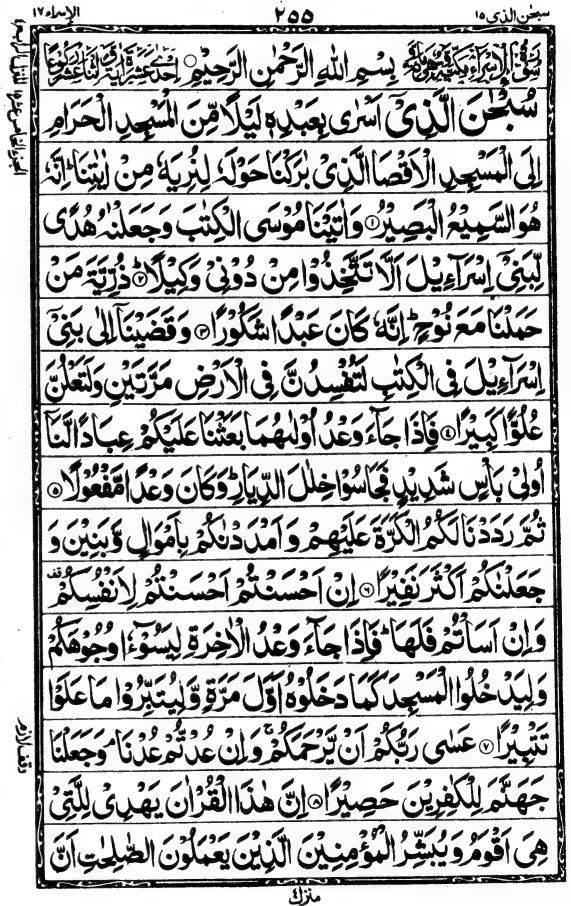 سبحن الذى ١٥ ٢٥٥ الإسراء ١٧
بِسْمِ اللهِ الرَّحْمٰنِ الرَّحِيْمِ
سُبْحٰنَ الَّذِيْٓ اَسْرٰى بِعَبْدِهٖ لَيْلًا مِّنَ الْمَسْجِدِ الْحَرَامِ
اِلَى الْمَسْجِدِ الْاَقْصَا الَّذِيْ بٰرَكْنَا حَوْلَهٗ لِنُرِيَهٗ مِنْ اٰيٰتِنَا ؕ اِنَّهٗ
هُوَ السَّمِيْعُ الْبَصِيْرُ ﴿١﴾ وَاٰتَيْنَا مُوْسَى الْكِتٰبَ وَجَعَلْنٰهُ هُدًى
لِّبَنِيْٓ اِسْرَآءِيْلَ اَلَّا تَتَّخِذُوْا مِنْ دُوْنِيْ وَكِيْلًا ؕ﴿٢﴾ ذُرِّيَّةَ مَنْ
حَمَلْنَا مَعَ نُوْحٍ ؕ اِنَّهٗ كَانَ عَبْدًا شَكُوْرًا ﴿٣﴾ وَقَضَيْنَآ اِلٰى بَنِيْٓ
اِسْرَآءِيْلَ فِي الْكِتٰبِ لَتُفْسِدُنَّ فِي الْاَرْضِ مَرَّتَيْنِ وَلَتَعْلُنَّ
عُلُوًّا كَبِيْرًا ﴿٤﴾ فَاِذَا جَآءَ وَعْدُ اُوْلٰىهُمَا بَعَثْنَا عَلَيْكُمْ عِبَادًا لَّنَآ
اُولِيْ بَاْسٍ شَدِيْدٍ فَجَاسُوْا خِلٰلَ الدِّيَارِ ؕ وَكَانَ وَعْدًا مَّفْعُوْلًا ﴿٥﴾
ثُمَّ رَدَدْنَا لَكُمُ الْكَرَّةَ عَلَيْهِمْ وَاَمْدَدْنٰكُمْ بِاَمْوَالٍ وَّبَنِيْنَ وَ
جَعَلْنٰكُمْ اَكْثَرَ نَفِيْرًا ﴿٦﴾ اِنْ اَحْسَنْتُمْ اَحْسَنْتُمْ لِاَنْفُسِكُمْ قف
وَاِنْ اَسَاْتُمْ فَلَهَا ؕ فَاِذَا جَآءَ وَعْدُ الْاٰخِرَةِ لِيَسُوْٓءٗا وُجُوْهَكُمْ
وَلِيَدْخُلُوا الْمَسْجِدَ كَمَا دَخَلُوْهُ اَوَّلَ مَرَّةٍ وَّلِيُتَبِّرُوْا مَا عَلَوْا
تَتْبِيْرًا ﴿٧﴾ عَسٰى رَبُّكُمْ اَنْ يَّرْحَمَكُمْ ۚ وَاِنْ عُدْتُّمْ عُدْنَا ۘ وَجَعَلْنَا
جَهَنَّمَ لِلْكٰفِرِيْنَ حَصِيْرًا ﴿٨﴾ اِنَّ هٰذَا الْقُرْاٰنَ يَهْدِيْ لِلَّتِيْ
هِيَ اَقْوَمُ وَيُبَشِّرُ الْمُؤْمِنِيْنَ الَّذِيْنَ يَعْمَلُوْنَ الصّٰلِحٰتِ اَنَّ
وقف لازم
منزل ٤